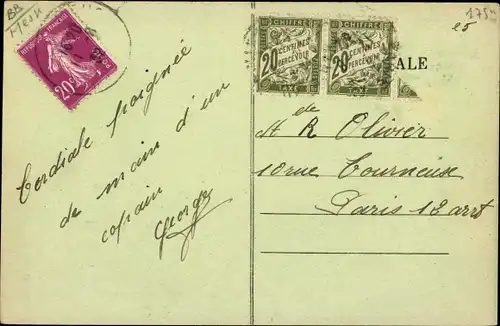 BB
Mesu
175n
25
REPUBLIQUE FRANÇAISE
20c
CHIFFRE
20 CENTIMES À PERCEVOIR
TAXE
CHIFFRE
20 CENTIMES À PERCEVOIR
TAXE
ALE
Cordiale poignée
de main d'un
copain
George
de
M R Olivier
10 rue Tourneuse
Paris 12 arrt